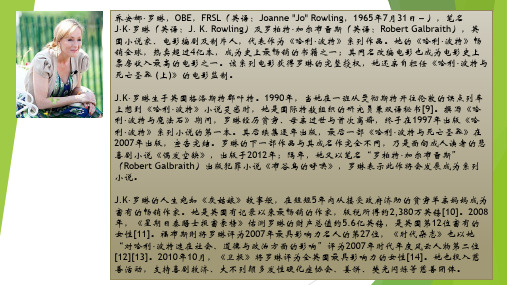 乔安娜·罗琳，OBE，FRSL（英语：Joanne "Jo" Rowling，1965年7月31日－），笔名
J·K·罗琳（英语：J. K. Rowling）及罗柏特·加尔布雷斯（英语：Robert Galbraith），英
国小说家、电影编剧及制作人，代表作为《哈利·波特》系列作品。她的《哈利·波特》畅
销全球，热卖超过4亿本，成为史上最畅销的书籍之一；其同名改编电影也成为电影史上
票房收入最高的电影之一。该系列电影获得罗琳的完整授权，她还亲自担任《哈利·波特与
死亡圣器(上)》的电影监制。
J.K·罗琳生于英国格洛斯特郡叶特。1990年，当她在一班从曼彻斯特开往伦敦的误点列车
上想到《哈利·波特》小说灵感时，她是国际特赦组织的研究员兼双语秘书[9]。撰写《哈
利·波特与魔法石》期间，罗琳经历贫穷、母亲过世与首次离婚，终于在1997年出版《哈
利·波特》系列小说的第一本。其后续集逐年出版，最后一部《哈利·波特与死亡圣器》在
2007年出版，宣告完结。罗琳的下一部作品与其成名作完全不同，乃是面向成人读者的悲
喜剧小说《偶发空缺》，出版于2012年；隔年，她又以笔名“罗柏特·加尔布雷斯”
（Robert Galbraith）出版犯罪小说《布谷鸟的呼唤》，罗琳表示此作将会发展成为系列
小说。
J.K·罗琳的人生宛如《灰姑娘》故事般，在短短5年内从接受政府济助的贫穷单亲妈妈成为
富有的畅销作家。她是英国有记录以来最畅销的作家，版税所得约2,380万英镑[10]。2008
年，《星期日泰晤士报富豪榜》估测罗琳的财产总值约5.6亿英镑，是英国第12位富有的
女性[11]。福布斯则将罗琳评为2007年最具影响力名人的第27位，《时代杂志》也以她
“对哈利·波特迷在社会、道德与政治方面的影响”评为2007年时代年度风云人物第二位
[12][13]。2010年10月，《卫报》将罗琳评为全英国最具影响力的女性[14]。她也投入慈
善活动，支持喜剧救济、大不列颠多发性硬化症协会、姜饼、荧光闪烁等慈善团体。